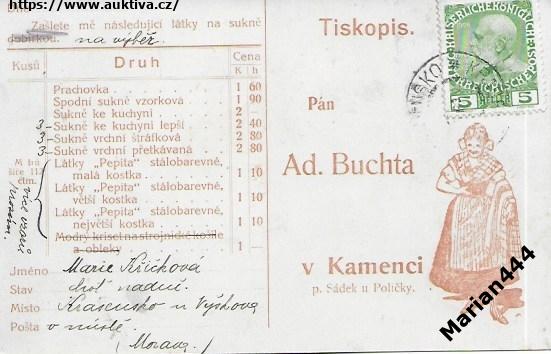 https://www.auktiva.cz/
Zašlete mé následující látky na sukně
dobírkou. na výběr.
Kusů Druh Cena
K h
Prachovka 1 60
Spodní sukně vzorková 1 90
Sukně ke kuchyni 2
3- Sukně ke kuchyni lepší 2 40
3- Sukně vrchní štráfková 2 80
3- Sukně vrchní přetkávaná 2 80
Látky „Pepita" stálobarevné,
malá kostka 1 10
Látky „Pepita" stálobarevné,
větší kostka 1 10
Látky „Pepita" stálobarevné,
největší kostka 1 10
Modrý kriset na strojnické košile
a obleky
více vzorů
prosím
Jméno Marie Křičková
Stav
Místo Krásensko u Vyškova
Pošta v místě.
(Morava.)
Tiskopis.
Pán
Ad. Buchta
v Kamenci
p. Sádek u Poličky.
5 5
Marian444